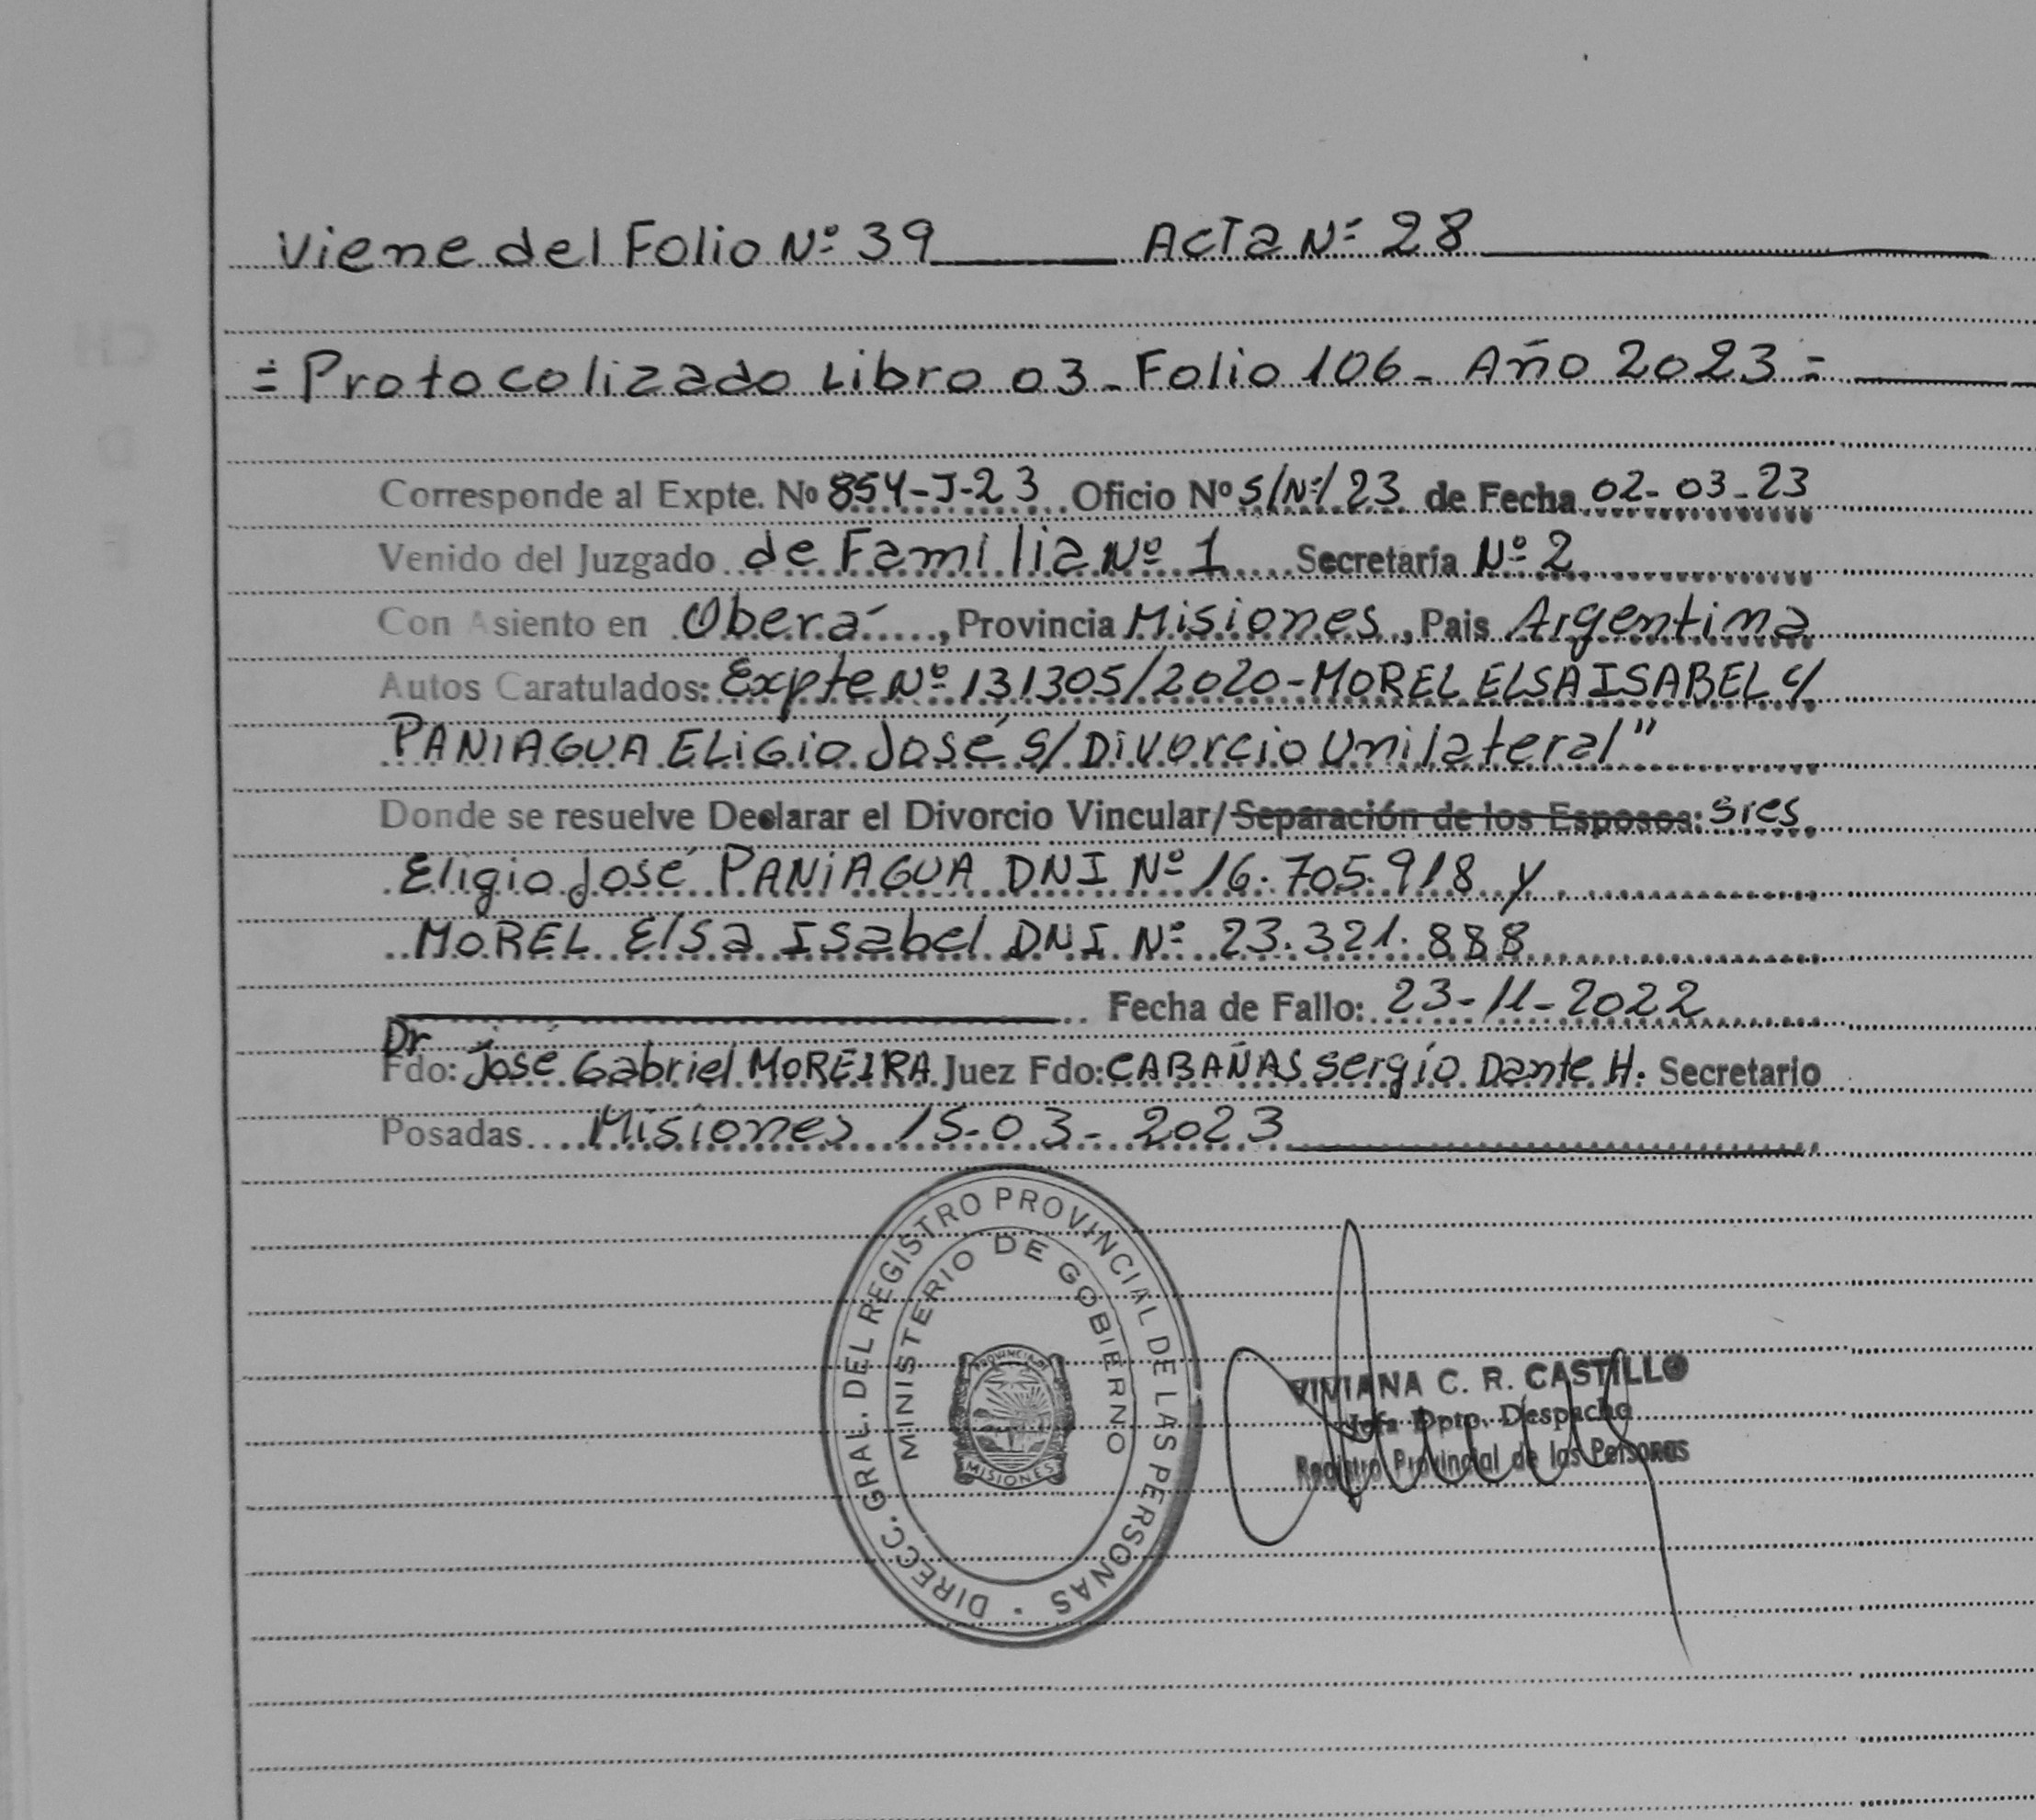 Viene del Folio Nº 39 Acta Nº 28
= Protocolizado Libro 03 - Folio 106 - Año 2023 =
Corresponde al Expte. Nº 854-J-23 Oficio Nº S/Nº/23 de Fecha 02-03-23
Venido del Juzgado de Familia Nº 1 Secretaría Nº 2
Con Asiento en Oberá, Provincia Misiones, Pais Argentina
Autos Caratulados: Expte Nº 131305/2020-MOREL ELSA ISABEL c/
PANIAGUA ELIGIO José s/ Divorcio Unilateral"
Donde se resuelve Declarar el Divorcio Vincular/Separación de los Esposos: Sres
Eligio José PANIAGUA DNI Nº 16.705.918 y
MOREL Elsa Isabel DNI Nº 23.321.888
Fecha de Fallo: 23-11-2022
Dr
Fdo: José Gabriel MOREIRA Juez Fdo: CABAÑAS Sergio Dante H. Secretario
Posadas Misiones 15-03-2023
DIRECC. GRAL. DEL REGISTRO PROVINCIAL DE LAS PERSONAS
MINISTERIO DE GOBIERNO
PROVINCIA DE
MISIONES
VIVIANA C. R. CASTILLO
Jefa Dpto. Despacho
Registro Provincial de las Personas